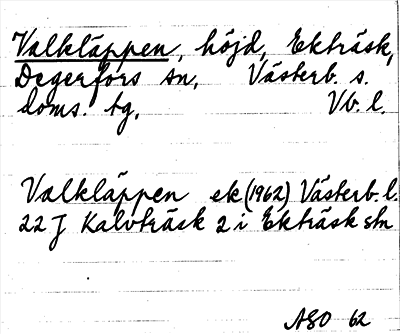 Valkläppen, höjd, Ekträsk,
Degerfors sn, Västerb. s.
doms. tg, Vb. l.
Valkläppen ek (1962) Västerb. l.
22 J Kalvträsk 2 i Ekträsk stn
ASO 62